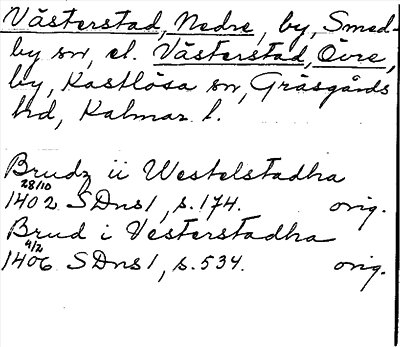 Västerstad, Nedre, by, Smed-
by sn, el. Västerstad, Övre,
by, Kastlösa sn, Gräsgårds
hd, Kalmar l.
Brudz ii Westelstadha
28/10
1402 SDns 1, s. 174. orig.
Brud i Vesterstadha
4/2
1406 SDns 1, s. 534. orig.